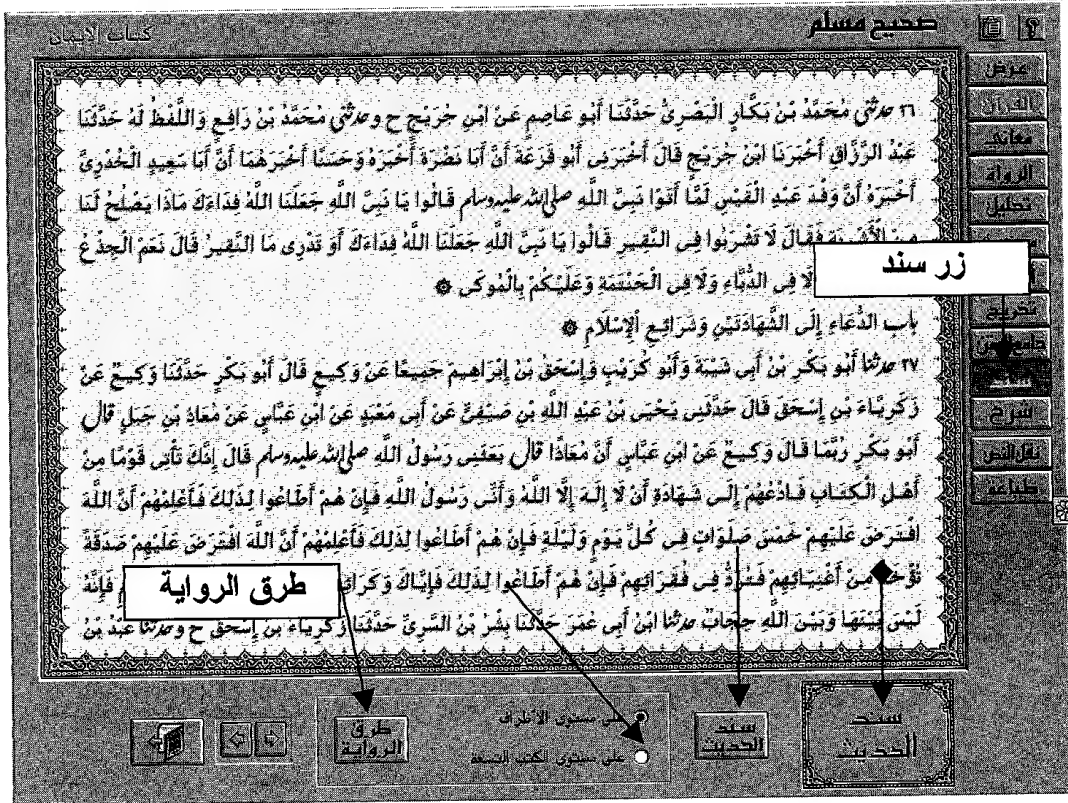 صحيح مسلم
كتاب الايمان
عرض
القرآن
معاني
الرواة
تحليل
تخريج
سند
شرح
نقل النص
طباعة
٢٦ حدثني مُحَمَّدُ بْنُ بَكَّارٍ الْبَصْرِيُّ حَدَّثَنَا أَبُو عَاصِمٍ عَنْ ابْنِ جُرَيْجٍ ح و حدثني مُحَمَّدُ بْنُ رَافِعٍ وَاللَّفْظُ لَهُ حَدَّثَنَا
عَبْدُ الرَّزَّاقِ أَخْبَرَنَا ابْنُ جُرَيْجٍ قَالَ أَخْبَرَنِي أَبُو قَزَعَةَ أَنَّ أَبَا نَضْرَةَ أَخْبَرَهُ وَحَسَنًا أَخْبَرَهُمَا أَنَّ أَبَا سَعِيدٍ الْخُدْرِيَّ
أَخْبَرَهُ أَنَّ وَفْدَ عَبْدِ الْقَيْسِ لَمَّا أَتَوْا نَبِيَّ اللَّهِ صلى الله عليه وسلم قَالُوا يَا نَبِيَّ اللَّهِ جَعَلَنَا اللَّهُ فِدَاءَكَ مَاذَا يَصْلُحُ لَنَا
مِنْ الْأَشْرِبَةِ فَقَالَ لَا تَشْرَبُوا فِي النَّقِيرِ قَالُوا يَا نَبِيَّ اللَّهِ جَعَلَنَا اللَّهُ فِدَاءَكَ أَوَ تَدْرِي مَا النَّقِيرُ قَالَ نَعَمْ الْجِذْعُ
زر سند
لَا فِي الدُّبَّاءِ وَلَا فِي الْحَنْتَمَةِ وَعَلَيْكُمْ بِالْمُوكَى
باب الدُّعَاءِ إِلَى الشَّهَادَتَيْنِ وَشَرَائِعِ الْإِسْلَامِ
٢٧ حدثنا أَبُو بَكْرِ بْنُ أَبِي شَيْبَةَ وَأَبُو كُرَيْبٍ وَإِسْحَقُ بْنُ إِبْرَاهِيمَ جَمِيعًا عَنْ وَكِيعٍ قَالَ أَبُو بَكْرٍ حَدَّثَنَا وَكِيعٌ عَنْ
زَكَرِيَّاءَ بْنِ إِسْحَقَ قَالَ حَدَّثَنِي يَحْيَى بْنُ عَبْدِ اللَّهِ بْنِ صَيْفِيٍّ عَنْ أَبِي مَعْبَدٍ عَنْ ابْنِ عَبَّاسٍ عَنْ مُعَاذِ بْنِ جَبَلٍ قال
أَبُو بَكْرٍ رُبَّمَا قَالَ وَكِيعٌ عَنْ ابْنِ عَبَّاسٍ أَنَّ مُعَاذًا قال بَعَثَنِي رَسُولُ اللَّهِ صلى الله عليه وسلم قَالَ إِنَّكَ تَأْتِي قَوْمًا مِنْ
أَهْلِ الْكِتَابِ فَادْعُهُمْ إِلَى شَهَادَةِ أَنْ لَا إِلَهَ إِلَّا اللَّهُ وَأَنِّي رَسُولُ اللَّهِ فَإِنْ هُمْ أَطَاعُوا لِذَلِكَ فَأَعْلِمْهُمْ أَنَّ اللَّهَ
افْتَرَضَ عَلَيْهِمْ خَمْسَ صَلَوَاتٍ فِي كُلِّ يَوْمٍ وَلَيْلَةٍ فَإِنْ هُمْ أَطَاعُوا لِذَلِكَ فَأَعْلِمْهُمْ أَنَّ اللَّهَ افْتَرَضَ عَلَيْهِمْ صَدَقَةً
تُؤْخَذُ مِنْ أَغْنِيَائِهِمْ فَتُرَدُّ فِي فُقَرَائِهِمْ فَإِنْ هُمْ أَطَاعُوا لِذَلِكَ فَإِيَّاكَ وَكَرَائِمَ فَإِنَّهُ
طرق الرواية
لَيْسَ بَيْنَهَا وَبَيْنَ اللَّهِ حِجَابٌ حدثنا ابْنُ أَبِي عُمَرَ حَدَّثَنَا بِشْرُ بْنُ السَّرِيِّ حَدَّثَنَا زَكَرِيَّاءُ بْنُ إِسْحَقَ ح و حدثنا عَبْدُ بْنُ
سند
الحديث
سند
الحديث
على مستوى الأطراف
على مستوى الكتب التسعة
طرق
الرواية